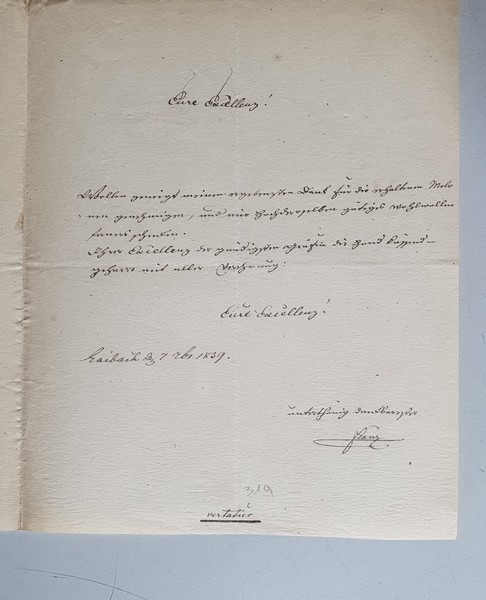 Eure Excellenz!
Wollen geneigt meinen ergebensten Dank für die erhaltenen Melo
nen genehmigen, und mir Hochderselben gütiges Wohlwollen
ferners schenken.
Ihrer Excellenz der gnädigsten Gräfin die Hand küssend
geharre mit aller Verehrung:
Eure Excellenz!
Laibach d 7 7br 1839.
unterthänig dankbarster
319
vertatur